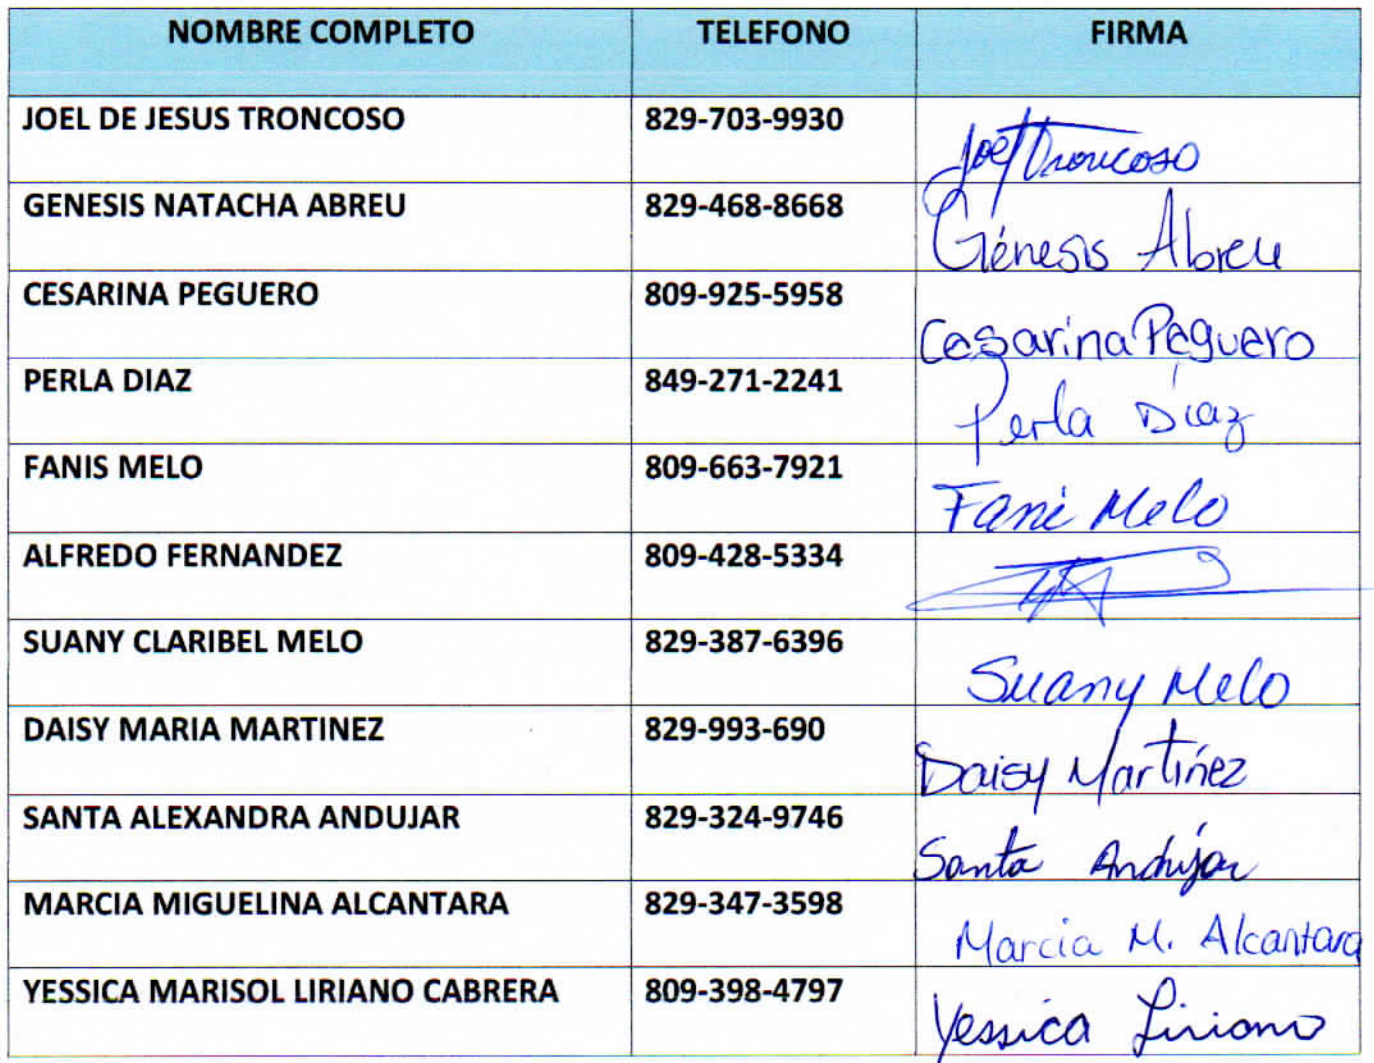 NOMBRE COMPLETO TELEFONO FIRMA
JOEL DE JESUS TRONCOSO 829-703-9930 Joel Troncoso
GENESIS NATACHA ABREU 829-468-8668 Génesis Abreu
CESARINA PEGUERO 809-925-5958 Cesarina Peguero
PERLA DIAZ 849-271-2241 Perla Díaz
FANIS MELO 809-663-7921 Fani Melo
ALFREDO FERNANDEZ 809-428-5334
SUANY CLARIBEL MELO 829-387-6396 Suany Melo
DAISY MARIA MARTINEZ 829-993-690 Daisy Martínez
SANTA ALEXANDRA ANDUJAR 829-324-9746 Santa Andújar
MARCIA MIGUELINA ALCANTARA 829-347-3598 Marcia M. Alcantara
YESSICA MARISOL LIRIANO CABRERA 809-398-4797 Yessica Liriano